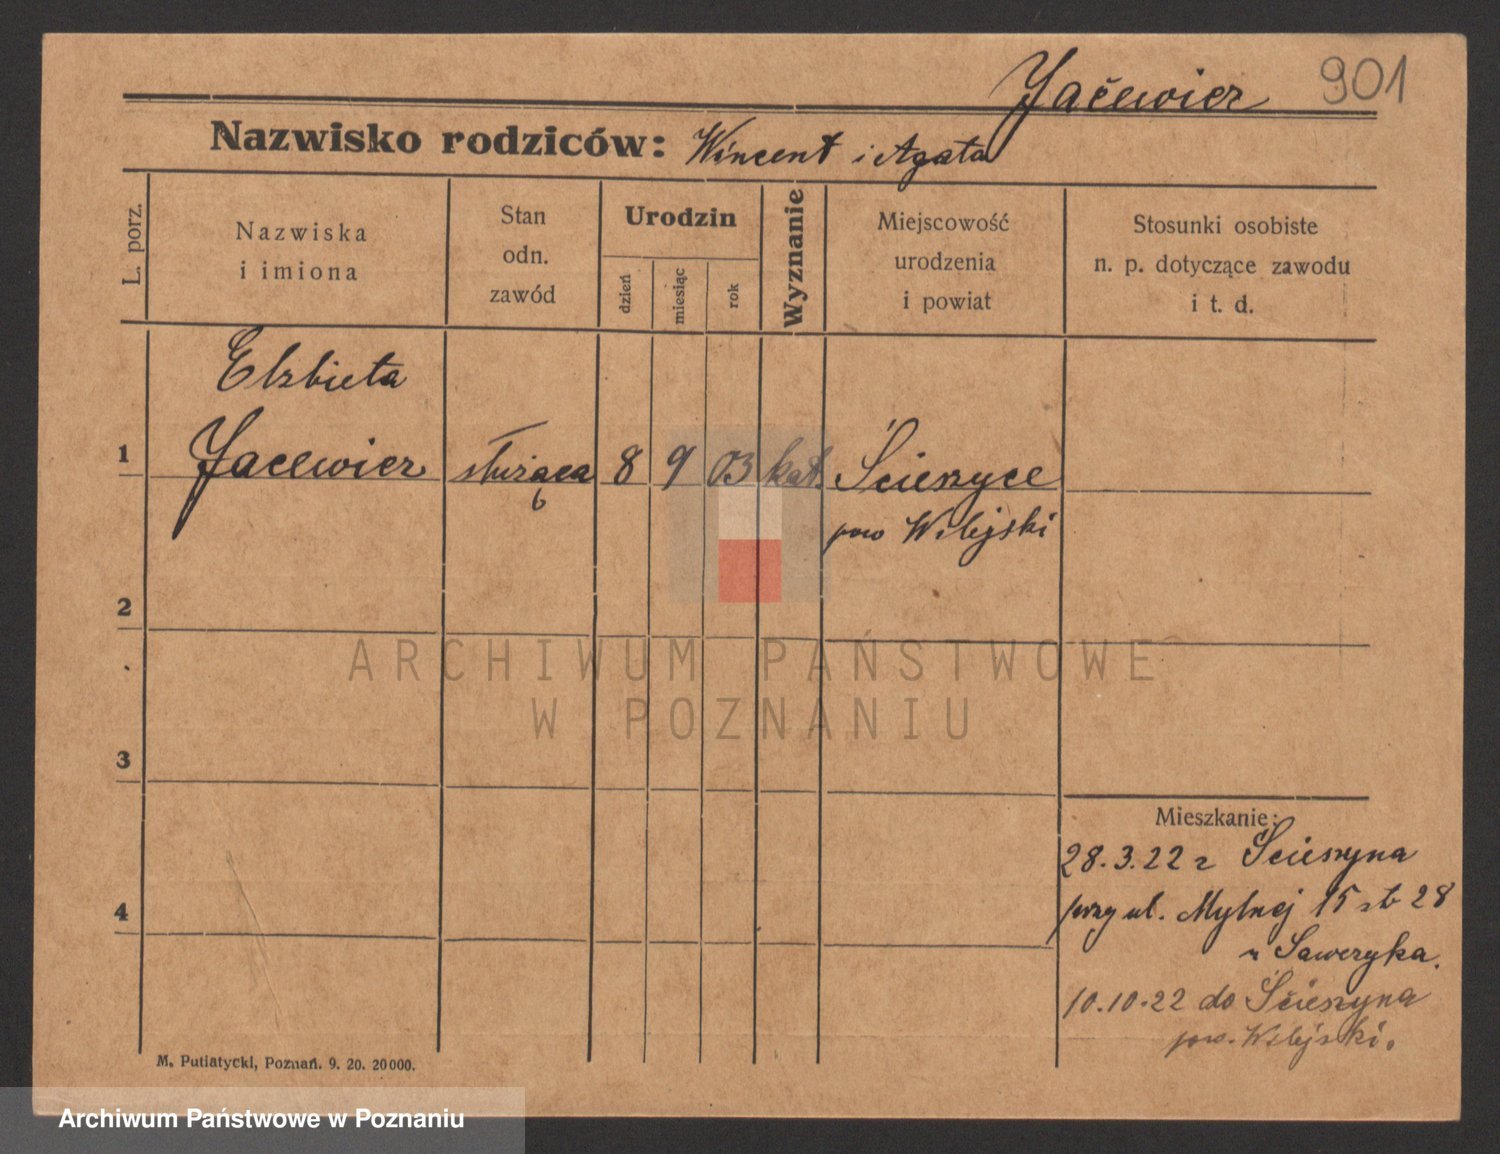 Jaćewicz 901
Nazwisko rodziców: Wincent i Agata
L. porz.
Nazwiska
i imiona
Stan
odn.
zawód
Urodzin
dzień
miesiąc
rok
Wyznanie
Miejscowość
urodzenia
i powiat
Stosunki osobiste
n. p. dotyczące zawodu
i t. d.
Elzbieta
1 Jacewicz służąca 8 9 03 kat. Ścieszyce
pow Wilejski
2
3
4
ARCHIWUM PAŃSTWOWE
W POZNANIU
Mieszkanie:
28.3.22 z Ścieszyna
przy ul. Mylnej 15 stb 28
u Saweryka.
10.10.22 do Ścieszyna
pow. Wilejski.
M. Putiatycki, Poznań. 9. 20. 20000.
Archiwum Państwowe w Poznaniu